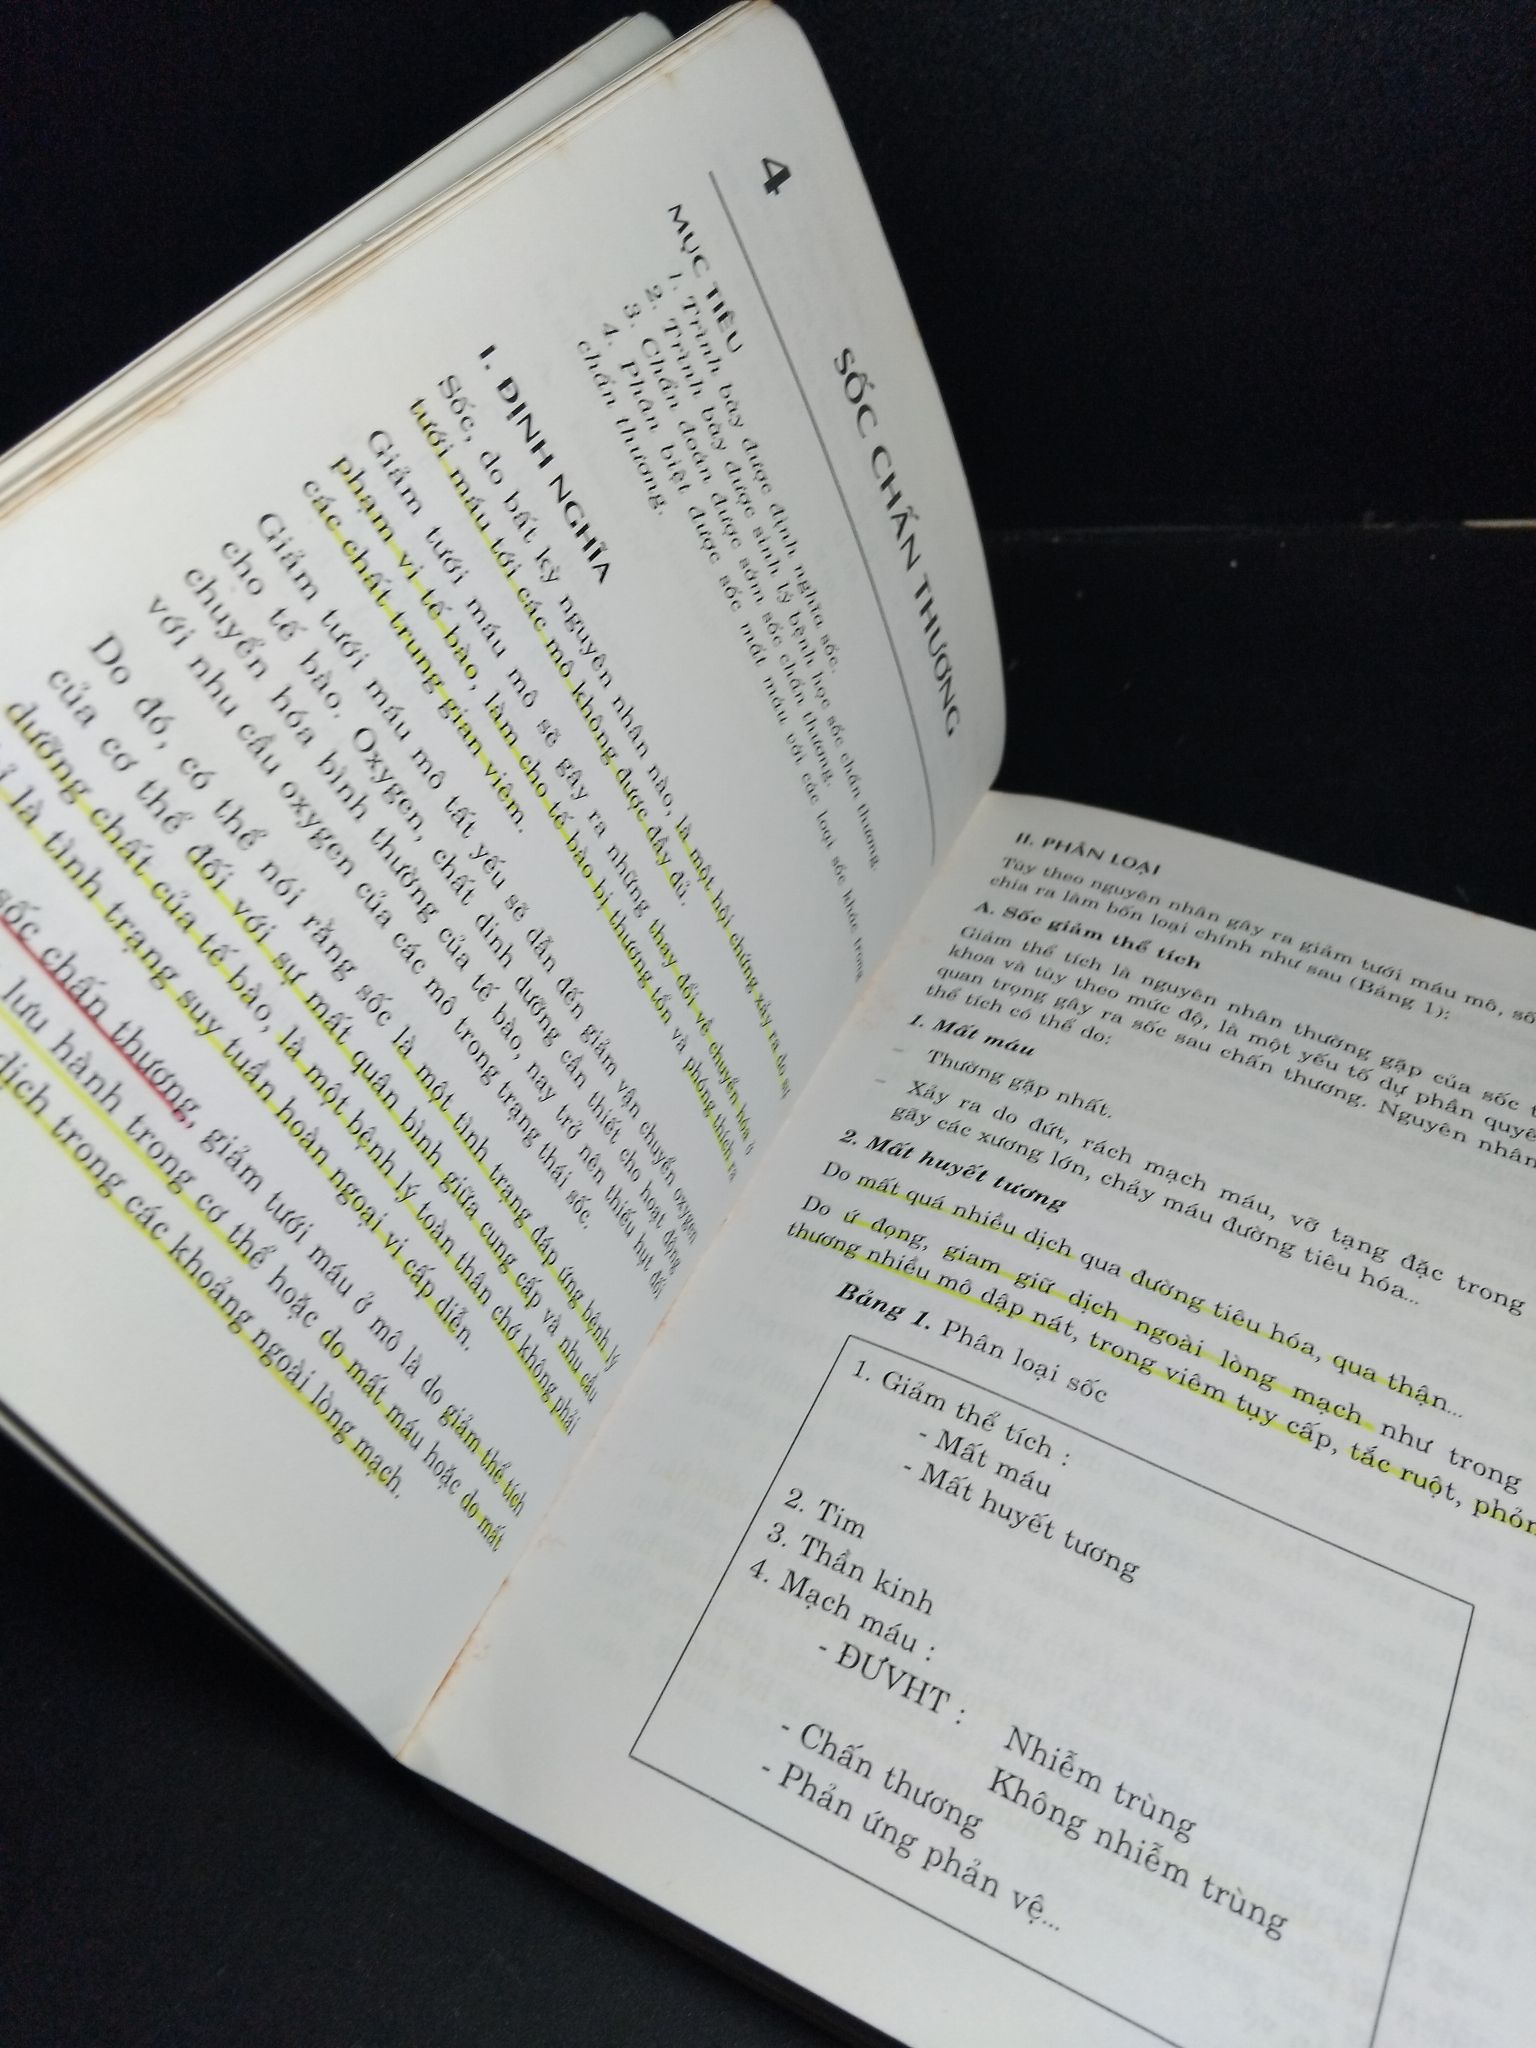 4
SỐC CHẤN THƯƠNG
MỤC TIÊU
1. Trình bày được định nghĩa sốc.
2. Trình bày được sinh lý bệnh học sốc chấn thương.
3. Chẩn đoán được sớm sốc chấn thương.
4. Phân biệt được sốc mất máu với các loại sốc khác trong
chấn thương.
I. ĐỊNH NGHĨA
Sốc, do bất kỳ nguyên nhân nào, là một hội chứng xảy ra do sự
tưới máu tới các mô không được đầy đủ.
Giảm tưới máu mô sẽ gây ra những thay đổi về chuyển hóa ở
phạm vi tế bào, làm cho tế bào bị thương tổn và phóng thích ra
các chất trung gian viêm.
Giảm tưới máu mô tất yếu sẽ dẫn đến giảm vận chuyển oxygen
cho tế bào. Oxygen, chất dinh dưỡng cần thiết cho hoạt động
chuyển hóa bình thường của tế bào, nay trở nên thiếu hụt đối
với nhu cầu oxygen của các mô trong trạng thái sốc.
Do đó, có thể nói rằng sốc là một tình trạng đáp ứng bệnh lý
của cơ thể đối với sự mất quân bình giữa cung cấp và nhu cầu
dưỡng chất của tế bào, là một bệnh lý toàn thân chớ không phải
là tình trạng suy tuần hoàn ngoại vi cấp diễn.
sốc chấn thương, giảm tưới máu ở mô là do giảm thể tích
lưu hành trong cơ thể hoặc do mất máu hoặc do mất
dịch trong các khoảng ngoài lòng mạch.
II. PHÂN LOẠI
Tùy theo nguyên nhân gây ra giảm tưới máu mô,
chia ra làm bốn loại chính như sau (Bảng 1):
A. Sốc giảm thể tích
Giảm thể tích là nguyên nhân thường gặp của sốc
khoa và tùy theo mức độ, là một yếu tố dự phần
quan trọng gây ra sốc sau chấn thương. Nguyên nhân
thể tích có thể do:
1. Mất máu
– Thường gặp nhất.
– Xảy ra do đứt, rách mạch máu, vỡ tạng đặc trong
gãy các xương lớn, chảy máu đường tiêu hóa...
2. Mất huyết tương
Do mất quá nhiều dịch qua đường tiêu hóa, qua thận...
Do ứ đọng, giam giữ dịch ngoài lòng mạch như trong
thương nhiều mô dập nát, trong viêm tụy cấp, tắc ruột,
Bảng 1. Phân loại sốc
1. Giảm thể tích :
- Mất máu
- Mất huyết tương
2. Tim
3. Thần kinh
4. Mạch máu :
- ĐƯVHT : Nhiễm trùng
Không nhiễm trùng
- Chấn thương
- Phản ứng phản vệ...